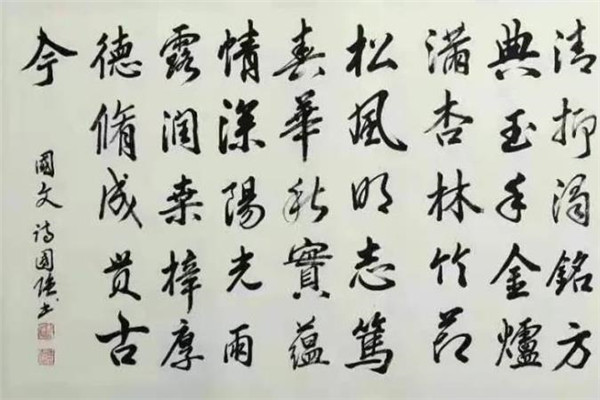 清抑濁銘方
典玉手金爐
滿杏林竹節
松風明志篤
春華秋實蘊
情深陽光雨
露潤桑梓厚
德脩成貫古
今
國文詩國書